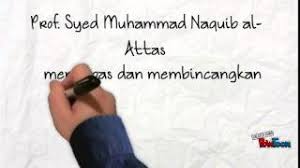 Prof. Syed Muhammad Naquib al-
Attas
dan membincangkan